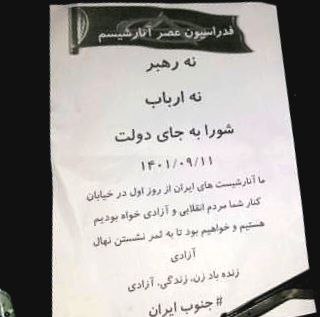 فدراسیون عصر آنارشیسم
نه رهبر
نه ارباب
شورا به جای دولت
۱۴۰۱/۰۹/۱۱
ما آنارشیست های ایران از روز اول در خیابان
کنار شما مردم انقلابی و آزادی خواه بودیم
هستیم و خواهیم بود تا به ثمر نشستن نهال
آزادی
زنده باد زن، زندگی، آزادی
#جنوب ایران